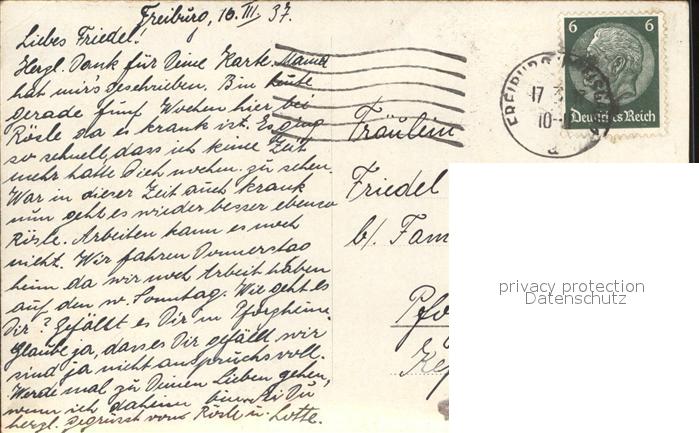 Freiburg, 16. III. 37.
Liebes Friedel!
Herzl. Dank für Deine Karte. Mama
hat mir's geschrieben. Bin heute
gerade fünf Wochen hier bei
Rösle da es krank ist. Es ging
so schnell, dass ich keine Zeit
mehr hatte Dich noch zu sehen.
War in dieser Zeit auch krank
nun geht es wieder besser ebenso
Rösle. Arbeiten kann es noch
nicht. Wir fahren Donnerstag
heim da wir noch Arbeit haben
auf den w. Sonntag. Wie geht es
Dir? Gefällt es Dir in Pforzheim.
Glaube ja, dass es Dir gefällt wir
sind ja nicht anspruchsvoll.
Werde mal zu Deinen Lieben gehen,
wenn ich daheim bin. Sei Du
herzl. gegrüsst von Rösle u. Lotte.
6 6
Deutsches Reich
FREIBURG
17. 3
10-
a
Fräulein
Friedel
b/ Fam
Pfo
privacy protection
Datenschutz